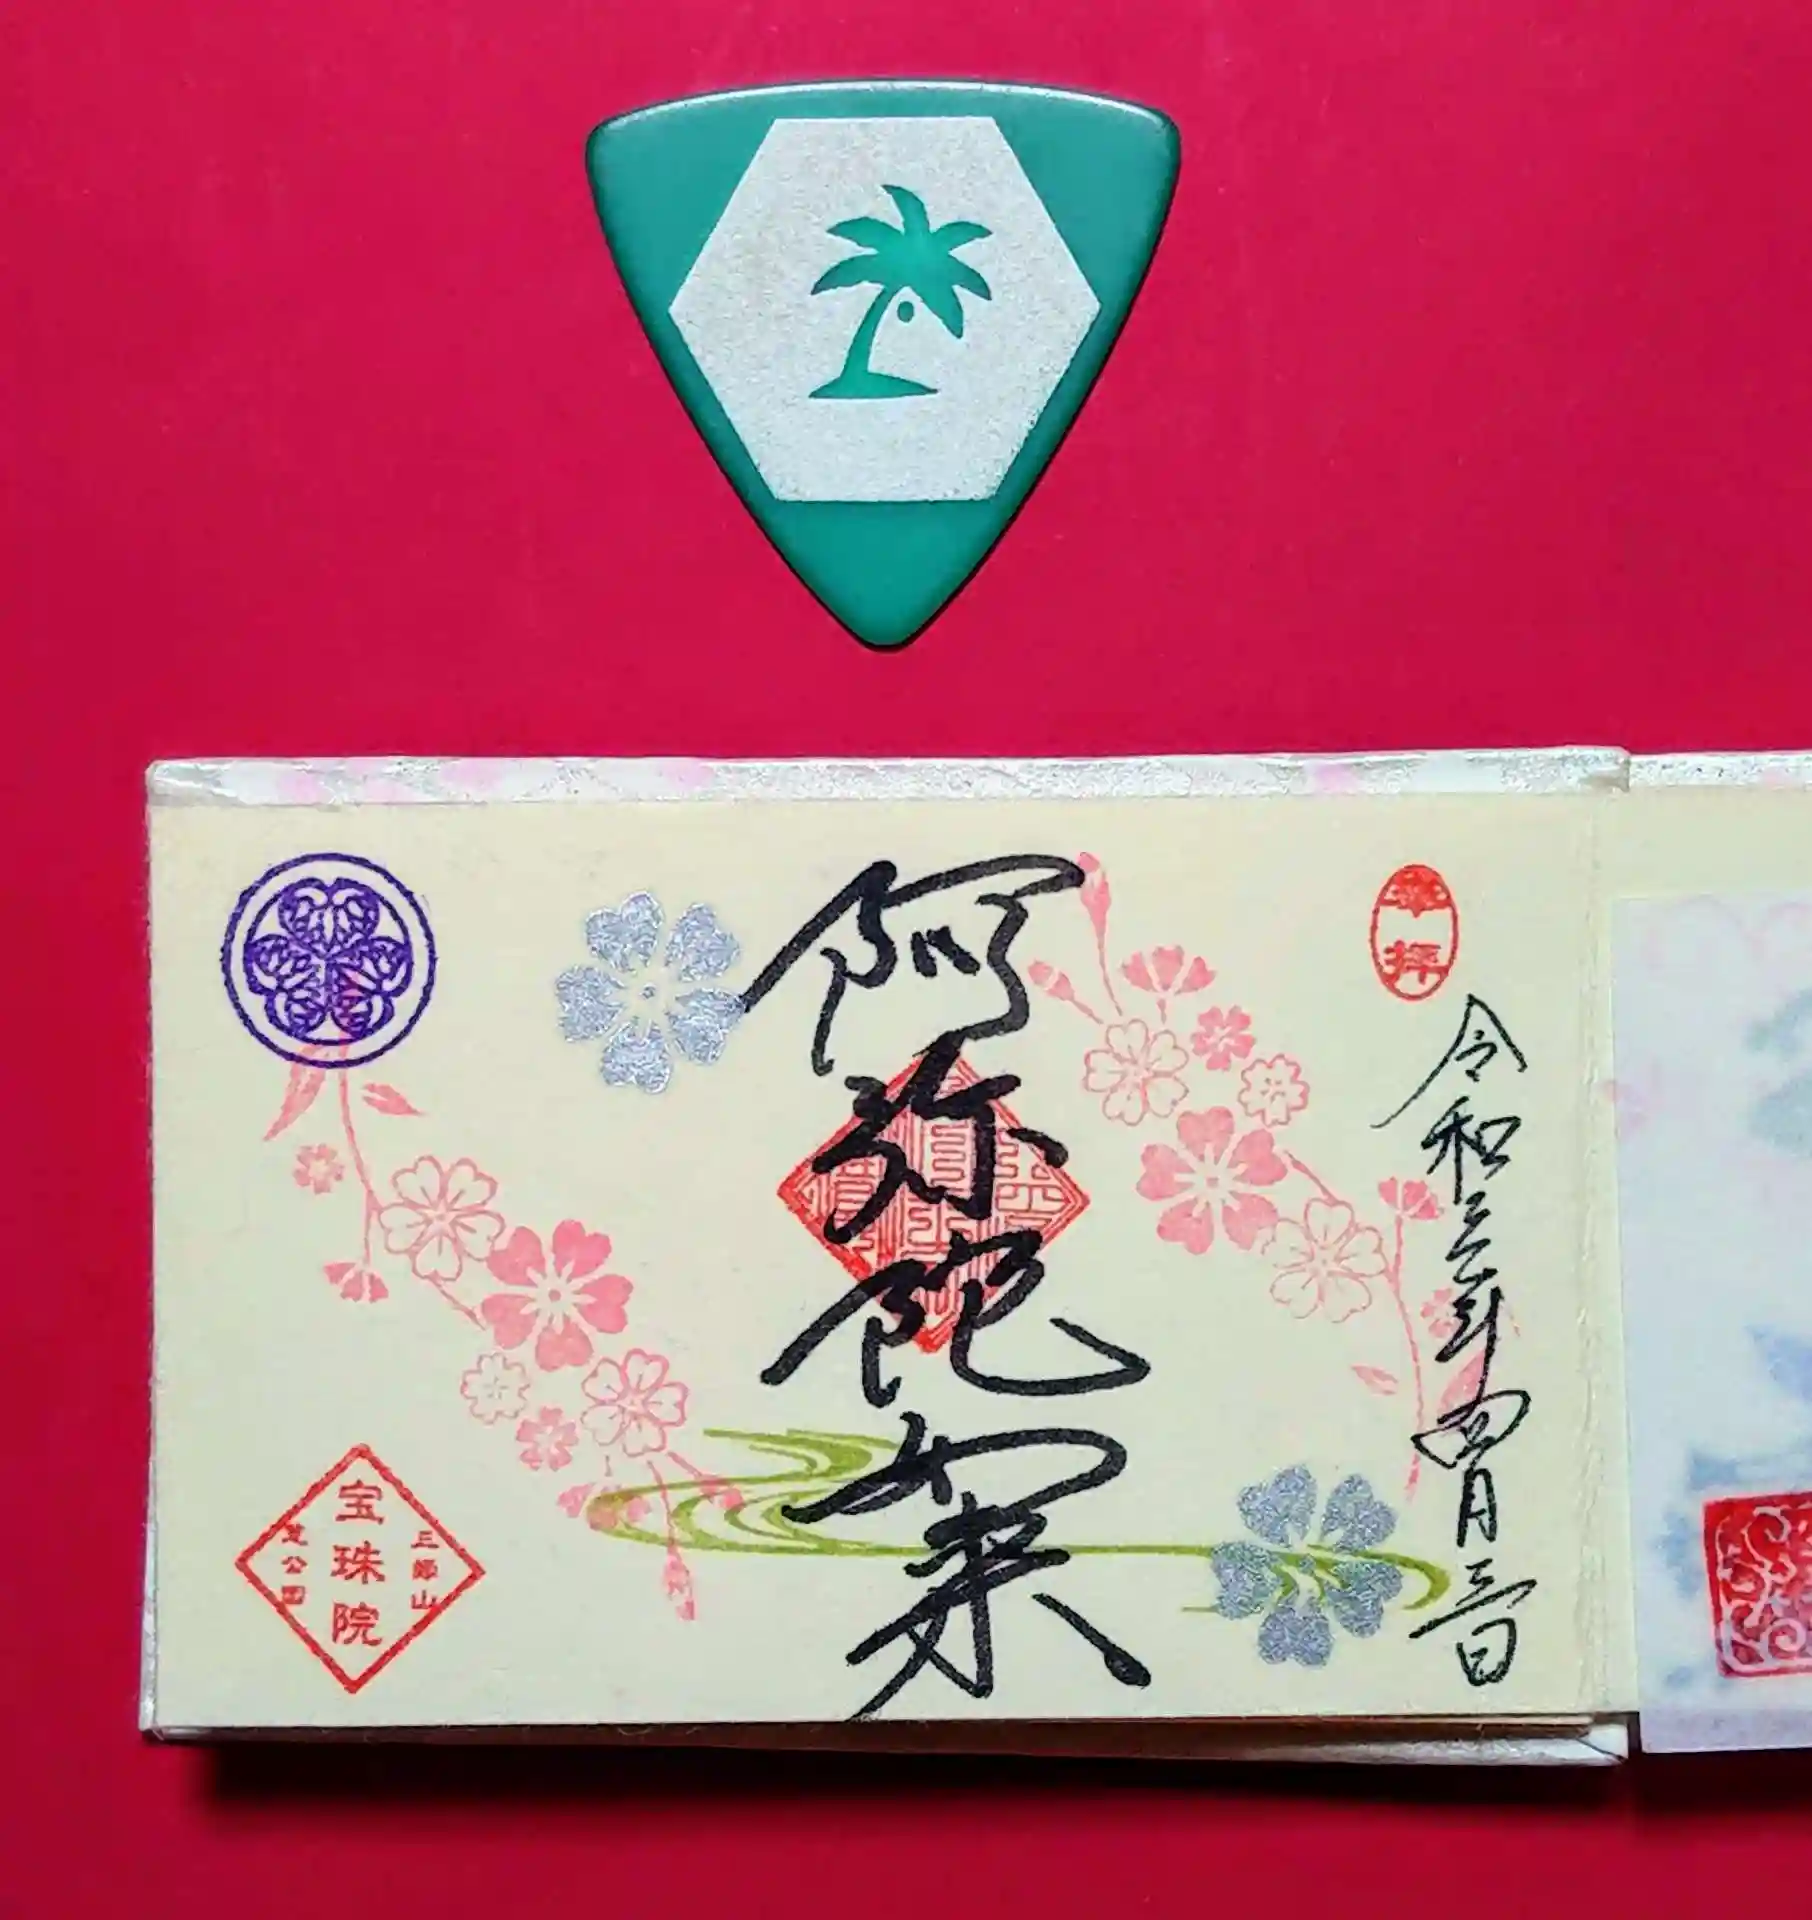 奉拝
令和三年四月
阿弥陀如来
三縁山
宝珠院
芝公園